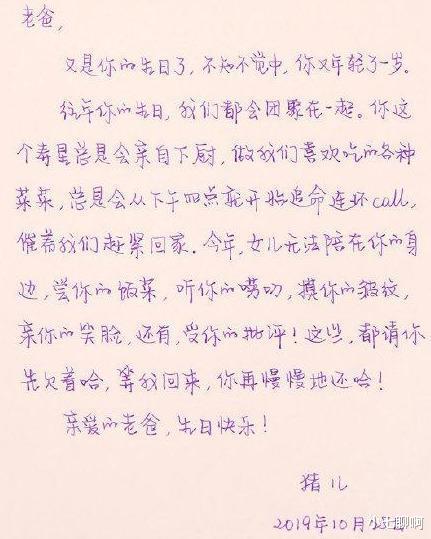 老爸，
又是你的生日了，不知不觉中，你又年轻了一岁。
往年你的生日，我们都会团聚在一起。你这
个寿星总是会亲自下厨，做我们喜欢吃的各种
菜菜，总是会从下午四点就开始追命连环call，
催着我们赶紧回家。今年，女儿无法陪在你的身
边，尝你的饭菜，听你的唠叨，摸你的皱纹，
亲你的笑脸，还有，受你的批评！这些，都请你
先欠着哈，等我回来，你再慢慢地还哈！
亲爱的老爸，生日快乐！
猪儿
2019年10月
小七聊啊